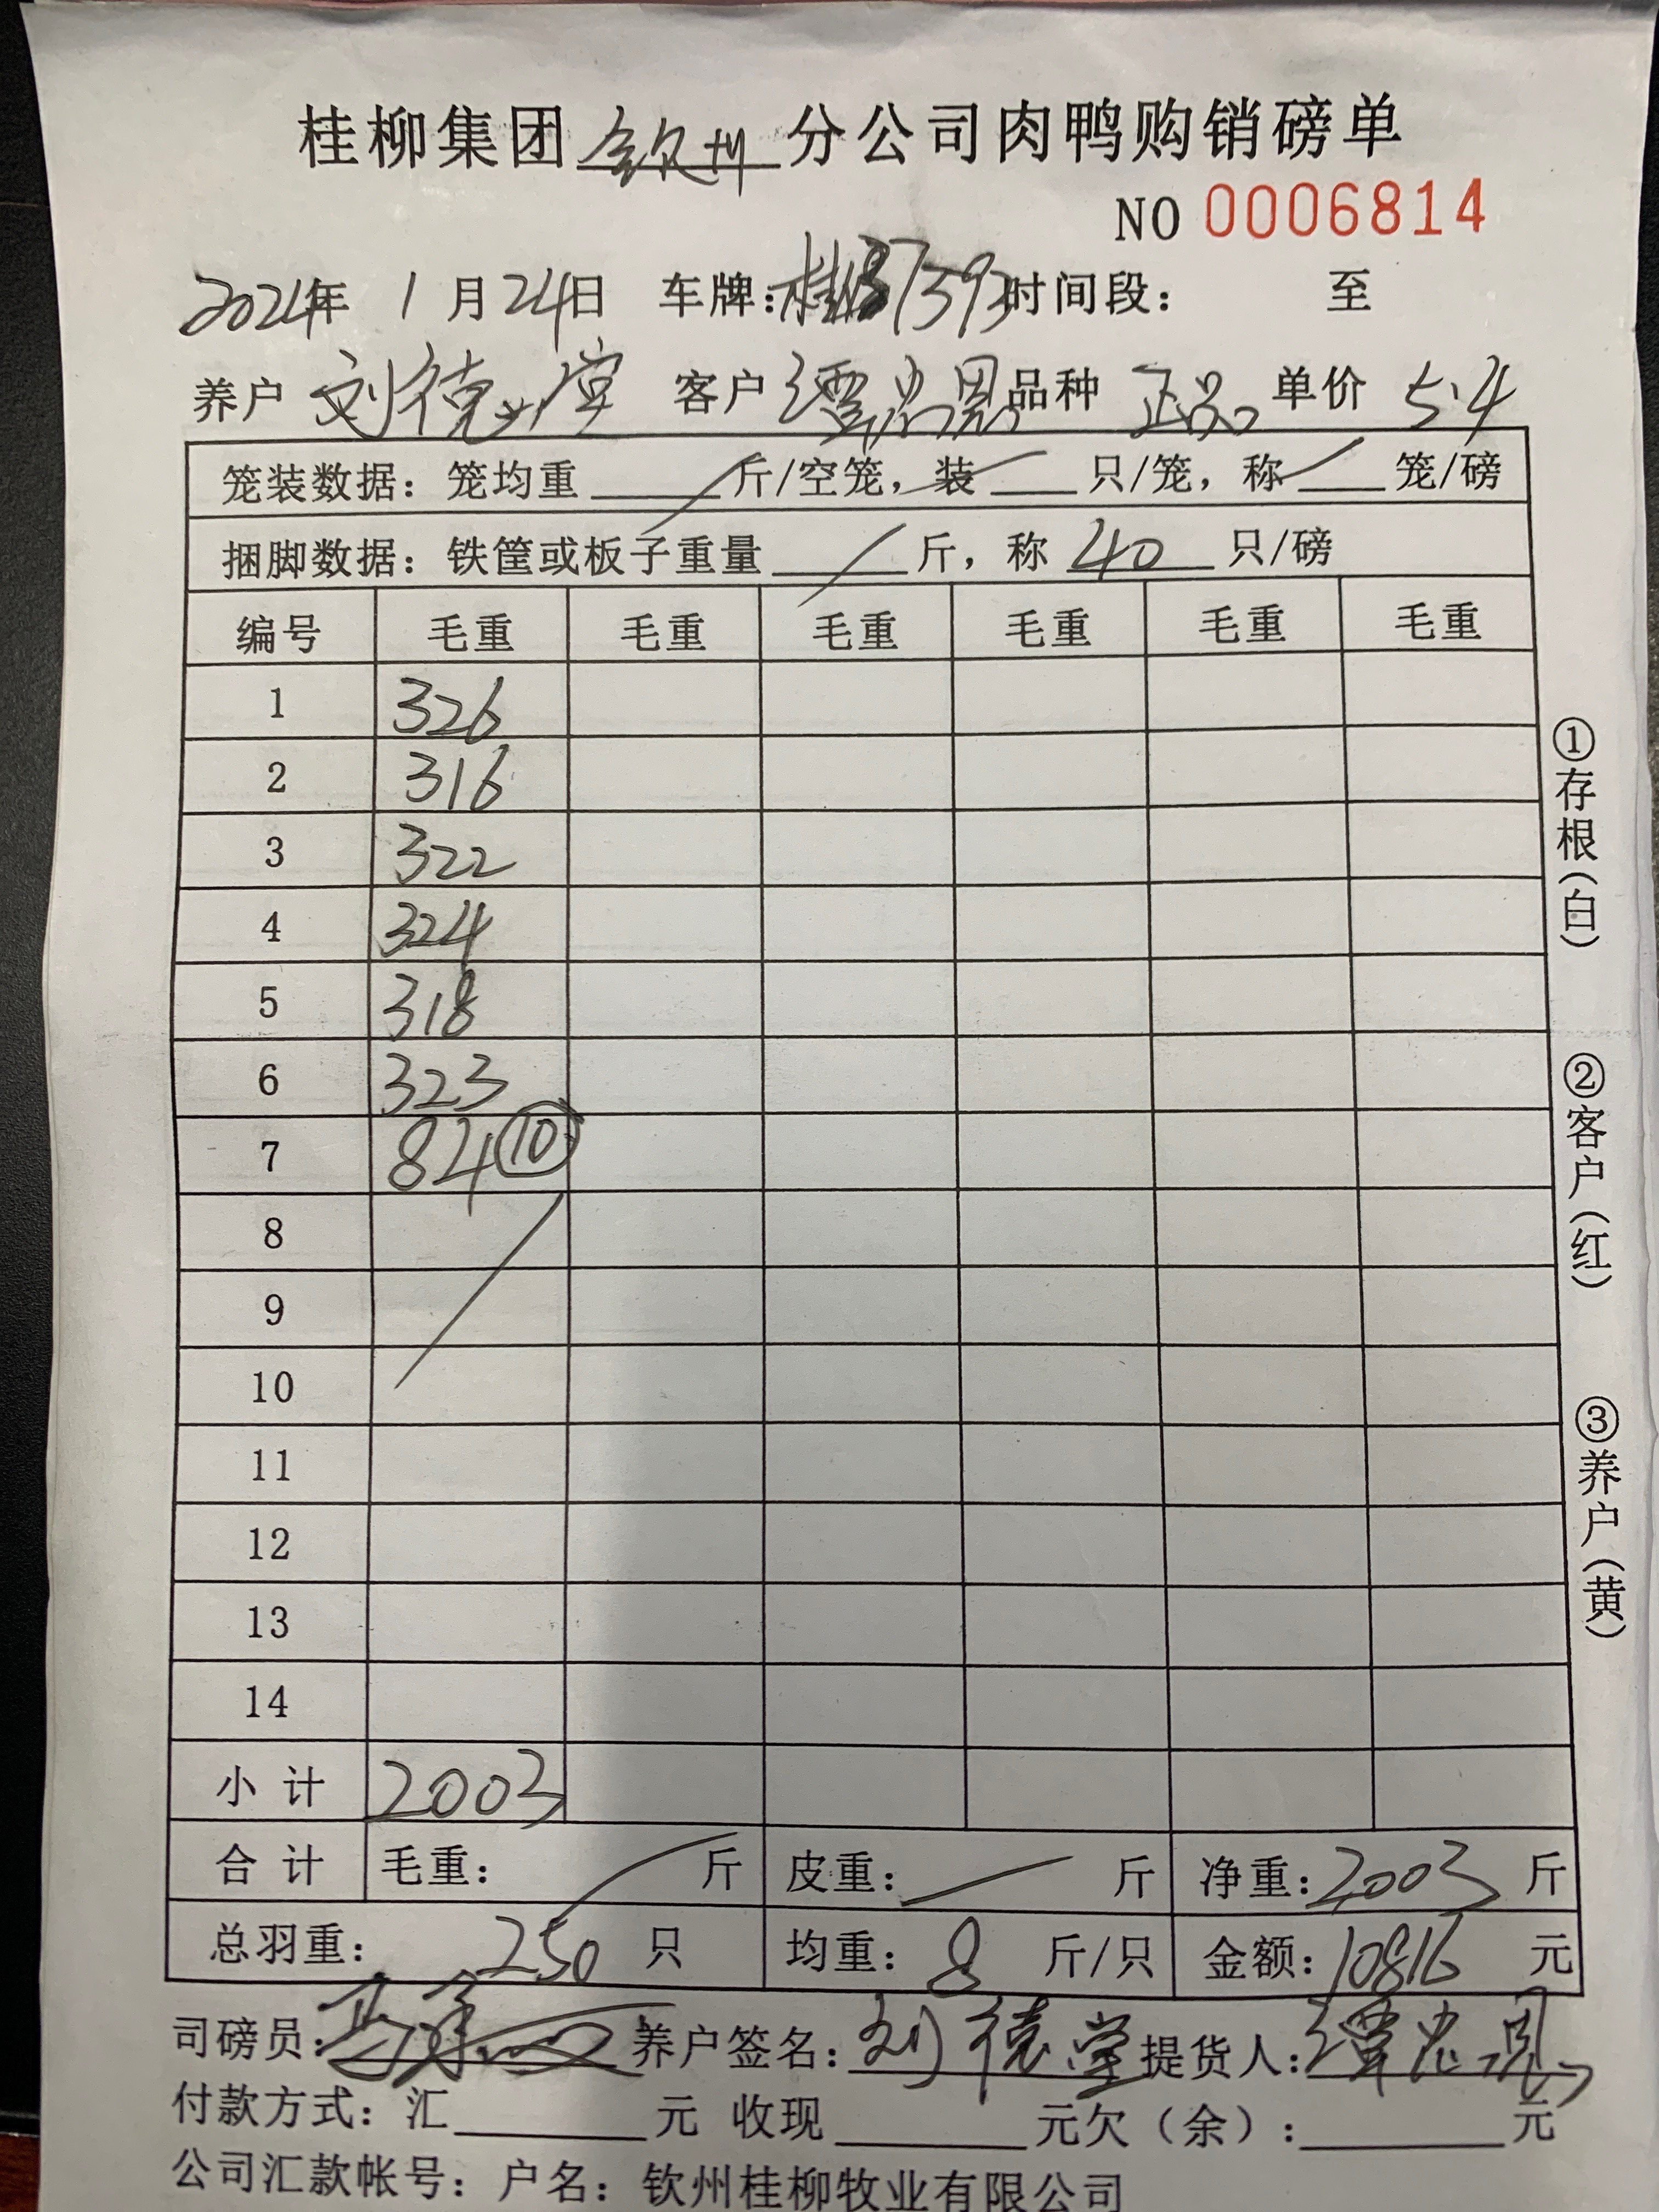 桂柳集团钦州分公司肉鸭购销磅单
NO 0006814
2024年 1月24日 车牌:桂 37393 时间段: 至
养户 刘德堂 客户 谭忠恩 品种 正品 单价 5.4
笼装数据:笼均重 斤/空笼,装 只/笼,称 笼/磅
捆脚数据:铁筐或板子重量 斤,称 40 只/磅
编号 毛重 毛重 毛重 毛重 毛重 毛重
1 326
2 316
3 322
4 324
5 318
6 323
7 84 ⑩
8
9
10
11
12
13
14
小计 2003
合计 毛重: 斤 皮重: 斤 净重:2003 斤
总羽重: 250 只 均重: 8 斤/只 金额:10816 元
司磅员: 养户签名:刘德堂 提货人:谭忠恩
付款方式:汇 元 收现 元欠(余): 元
公司汇款帐号:户名:钦州桂柳牧业有限公司
①存根(白)
②客户(红)
③养户(黄)